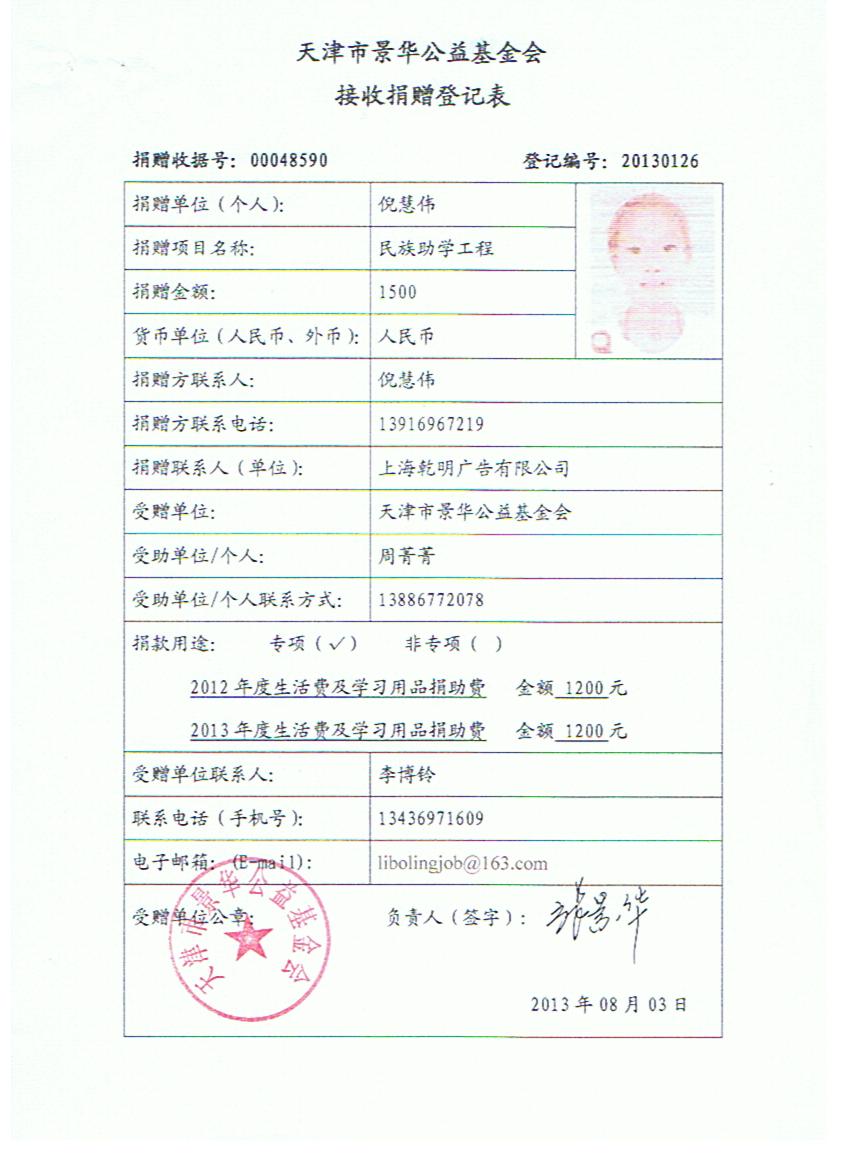 天津市景华公益基金会
接收捐赠登记表
捐赠收据号: 00048590 登记编号: 20130126
捐赠单位（个人）: 倪慧伟
捐赠项目名称: 民族助学工程
捐赠金额: 1500
货币单位（人民币、外币）: 人民币
捐赠方联系人: 倪慧伟
捐赠方联系电话: 13916967219
捐赠联系人（单位）: 上海乾明广告有限公司
受赠单位: 天津市景华公益基金会
受助单位/个人: 周菁菁
受助单位/个人联系方式: 13886772078
捐款用途: 专项（√） 非专项（ ）
2012 年度生活费及学习用品捐助费 金额 1200 元
2013 年度生活费及学习用品捐助费 金额 1200 元
受赠单位联系人: 李博铃
联系电话（手机号）: 13436971609
电子邮箱: (E-mail): libolingjob@163.com
受赠单位公章: 负责人（签字）:
天津市景华公益基金会
2013 年 08 月 03 日